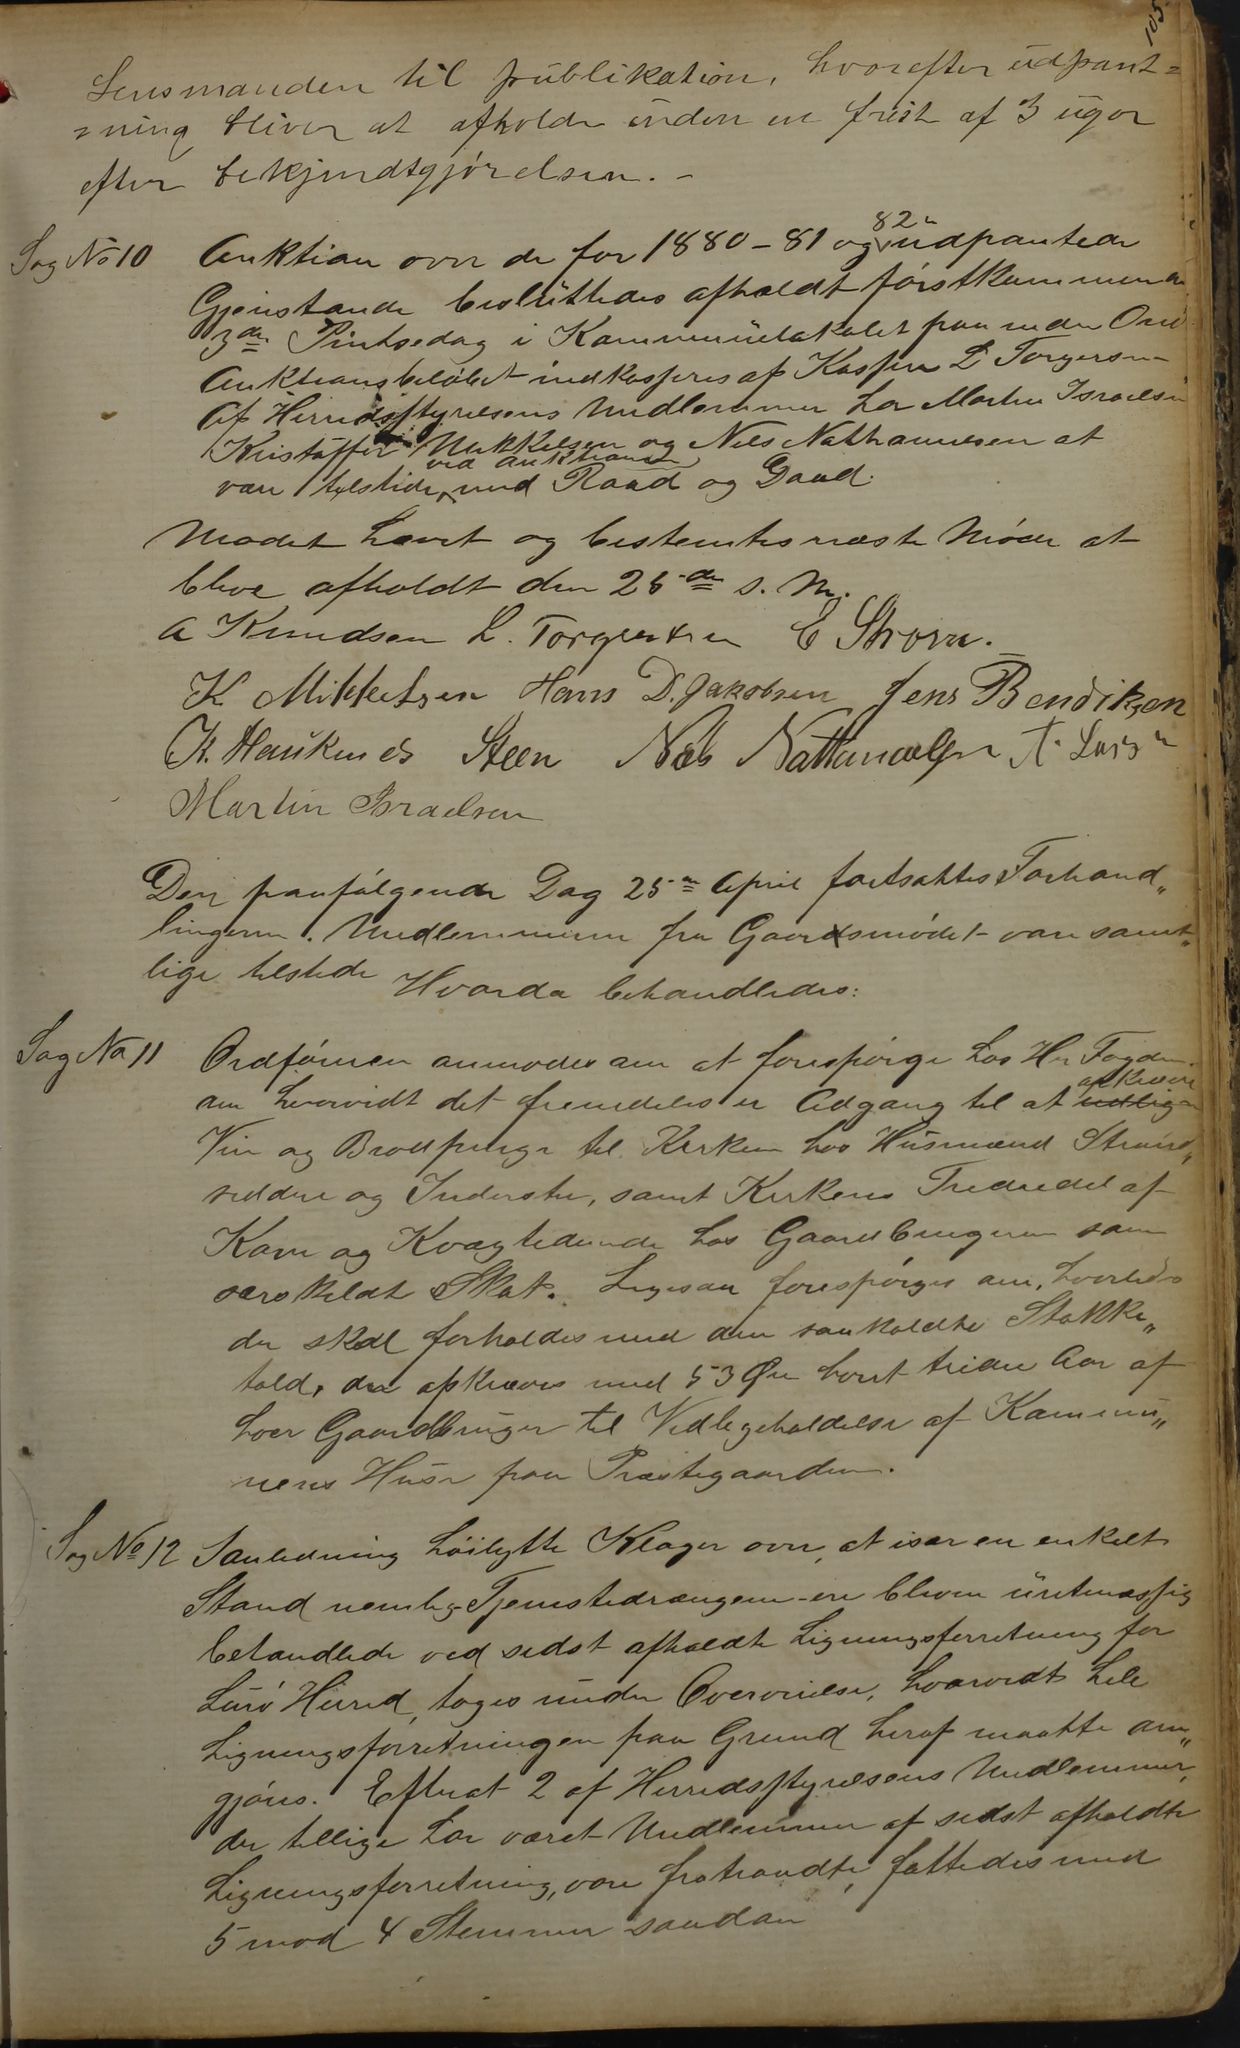 105.
Lensmanden til publikation, hvorefter udpant=
=ning bliver at afholde inden en frist af 3 uger
efter bekjendtgjørelsen. -
Sag No 10 Auktion over de for 1880-81 og 82n udpantede
Gjenstande besluttedes afholdt førstkommende
3die Pintsedag i Kommunelokalet paa indre Onø
Auktionsbeløbet indkasseres af Kasserer L Torgersen
Af Herredsstyrelsens Medlemmer har Martin Israelsen
Kristoffer Mikkelsen og Nils Nathanaelsen at
være tilstede ved auktionen med Raad og Daad.
Mødet hævet og bestemtes næste Møde at
blive afholdt den 25de s. M.
A Knudsen L. Torgersen E Strøm.
K Mikkelsen Hans D. Jakobsen Jens Bendiksen
K. Haukenes Steen Nils Nathanaelsen A. Larsen
Martin Israelsen
Den paafølgende Dag 25de April fortsattes Forhand„
lingerne. Medlemmerne fra Gaarsmødet vare samt„
lige tilstede Hvorda behandledes:
Sag No 11 Ordføreren anmodes om at forespørge hos Hr Fogden
om hvorvidt det fremdeles er Adgang til at udligne opkræve
Vin og Brødpenge til Kirken hos Husmænd Strand„
siddere og Inderster, samt Kirkens Trediedel af
Korn og Kvægtiende hos Gaardbrugerne som
særskildt Skat. Ligesaa forespørges om, hvorledes
der skal forholdes med den saakaldte Stakke„
told, der opkræves med 53 Øre hvert tredie Aar af
hver Gaardbruger til Vedligeholdelse af Kommu„
nens Huse paa Præstegaarden.
Sag No 12 I anledning høilytte Klager over, at især en enkelt
Stand nemlig Tjenestedrengene ere blevne uretmæssig
behandlede ved sidst afholdte Ligningsforretning for
Lurø Herred, toges under Overveielse, hvorvidt hele
Ligningsforretningen paa Grund heraf maatte om„
gjøres. Efterat 2 af Herredsstyrelsens Medlemmer,
der tillige har været Medlemmer af sidst afholdte
Ligningsforretning, vare fratraadte, fattedes med
5 mod 4 Stemmer saadan